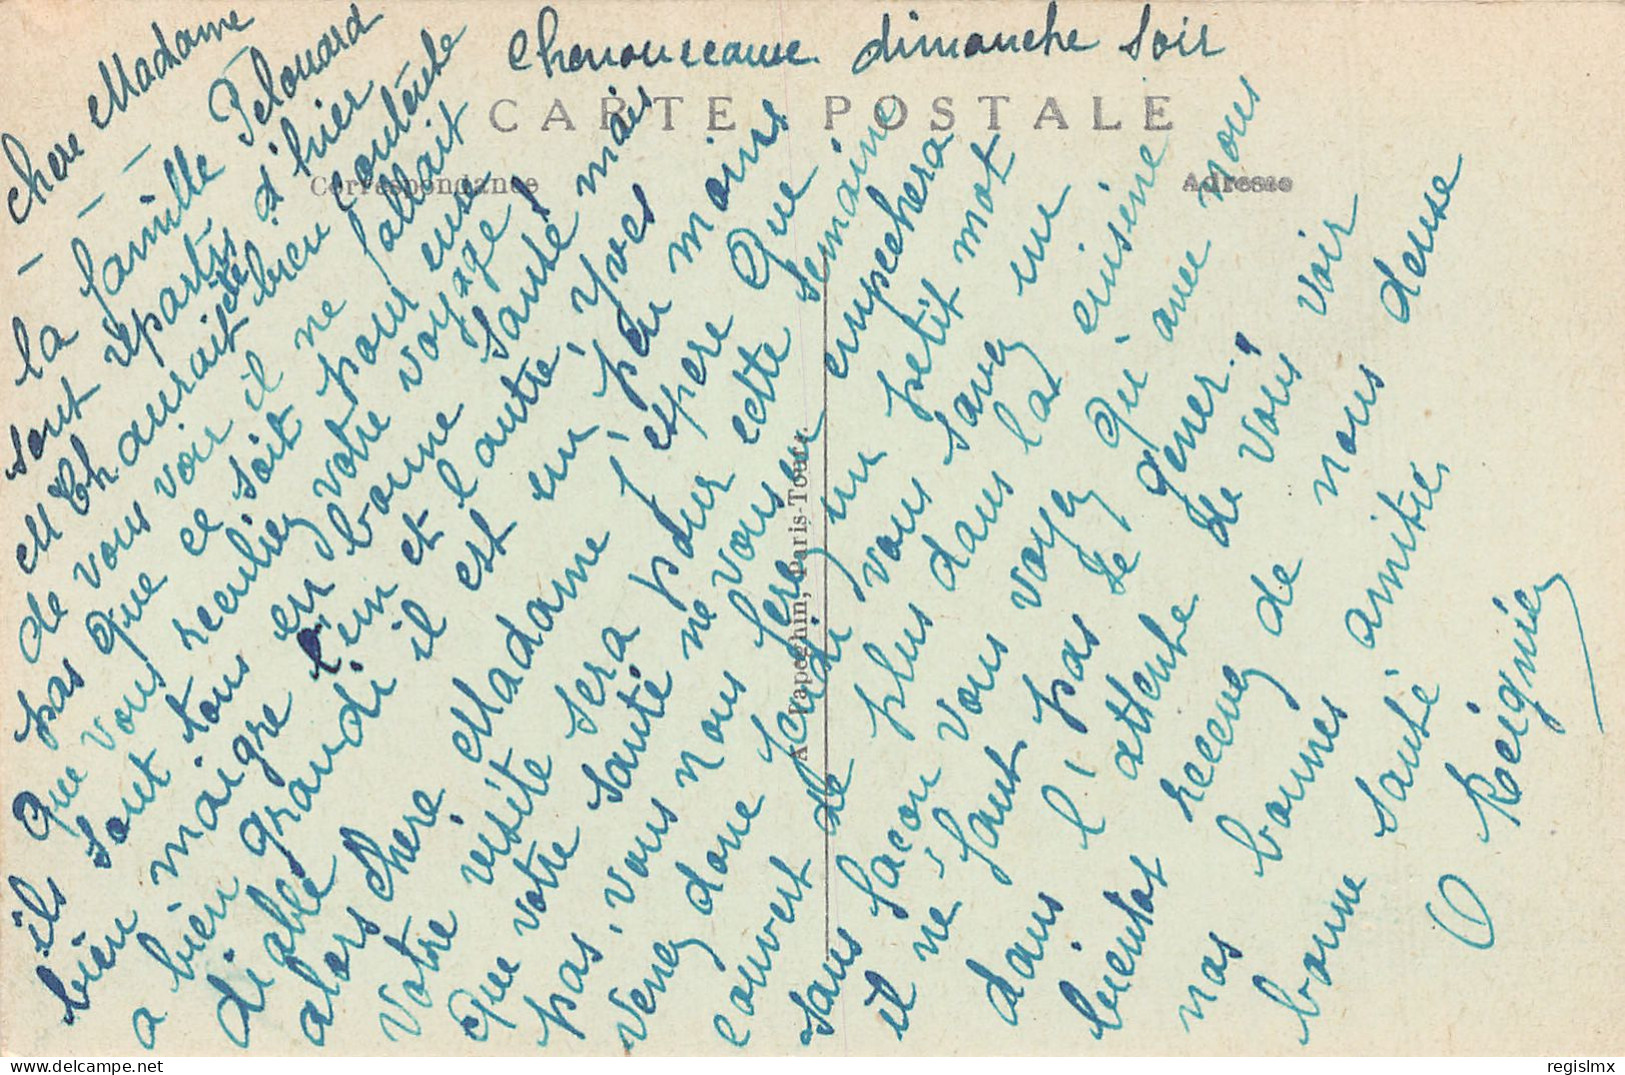 Chenonceaux. dimanche soir
CARTE POSTALE
Correspondance
Adresse
A. Papeghin, Paris-Tours.
Chere Madame
— — —
la famille Pelouard
sont repartis d'hier
et Th aurait été bien contente
de vous voir il ne fallait
pas que ce soit pour eux
que vous reculiez votre voyage,
ils sont tous en bonne santé mais
bien maigre l'un et l'autre, Yves
a bien grandi il est un peu moins
diable
alors chere Madame j'espere que
votre visite sera pour cette semaine
que votre santé ne vous en empechera
pas, vous nous ferez un petit mot
venez donc jeudi vous savez un
couvert de plus dans la cuisine
sans facon vous voyez qu'avec nous
il ne faut pas se gener,
dans l'attente de vous voir
bientot recevez de nous deux
nos bonnes amitiés,
bonne santé
O Reignier
regislmx